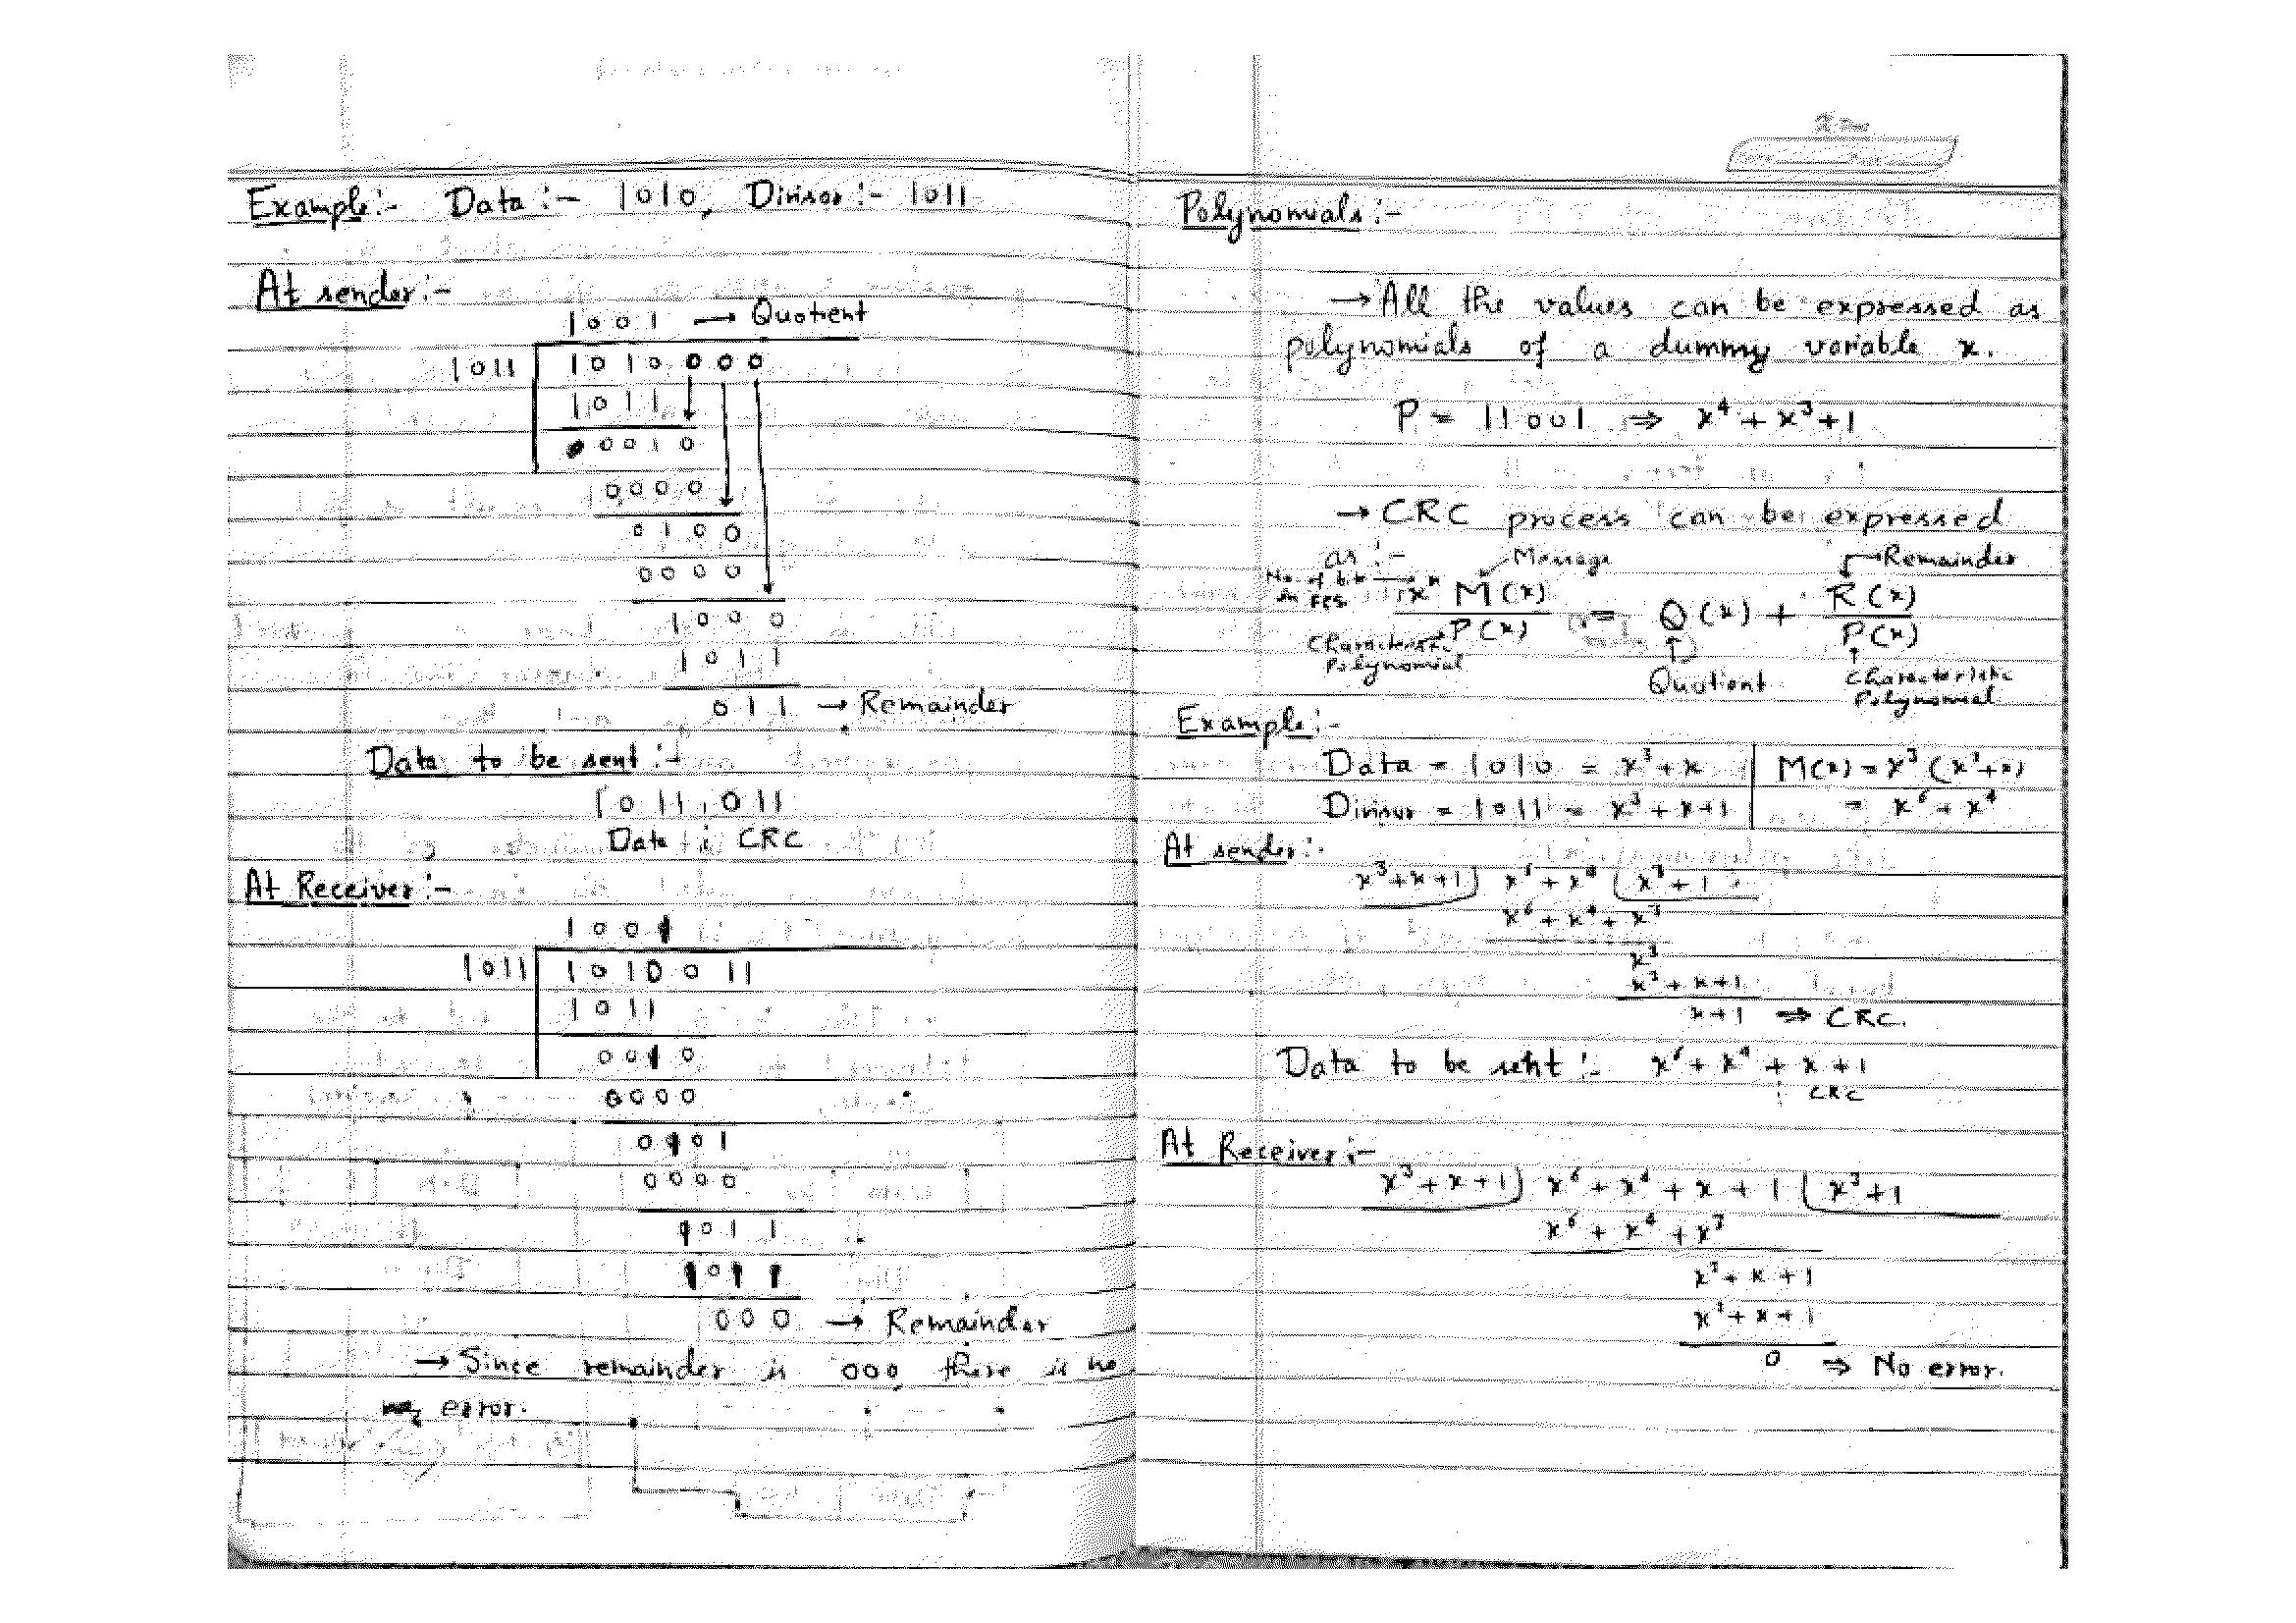 Example:- Data:- 1010, Divisor:- 1011
At sender:-
1001 → Quotient
1011 1010000
1011
0010
0000
0100
0000
1000
1011
011 → Remainder
Data to be sent:-
1011 011
Data CRC
At Receiver:-
1001
1011 1010011
1011
0010
0000
0101
0000
1011
1011
000 → Remainder
→ Since remainder is 000, there is no
error.
Polynomials:-
→ All the values can be expressed as
polynomials of a dummy variable x.
P = 11001 ⇒ x⁴ + x³ + 1
→ CRC process can be expressed
as:- Message Remainder
No. of bits in FCS → xⁿ M(x) / P(x) = Q(x) + R(x) / P(x)
Characteristic Polynomial Quotient Characteristic Polynomial
Example:-
Data = 1010 = x³ + x M(x) = x³(x³+x)
Divisor = 1011 = x³ + x + 1 = x⁶ + x⁴
At sender:-
x³+x+1) x⁶ + x⁴ (x³ + 1
x⁶ + x⁴ + x³
x³
x³ + x + 1
x+1 ⇒ CRC.
Data to be sent:- x⁶ + x⁴ + x + 1
CRC
At Receiver:-
x³ + x + 1) x⁶ + x⁴ + x + 1 (x³ + 1
x⁶ + x⁴ + x³
x³ + x + 1
x³ + x + 1
0 ⇒ No error.